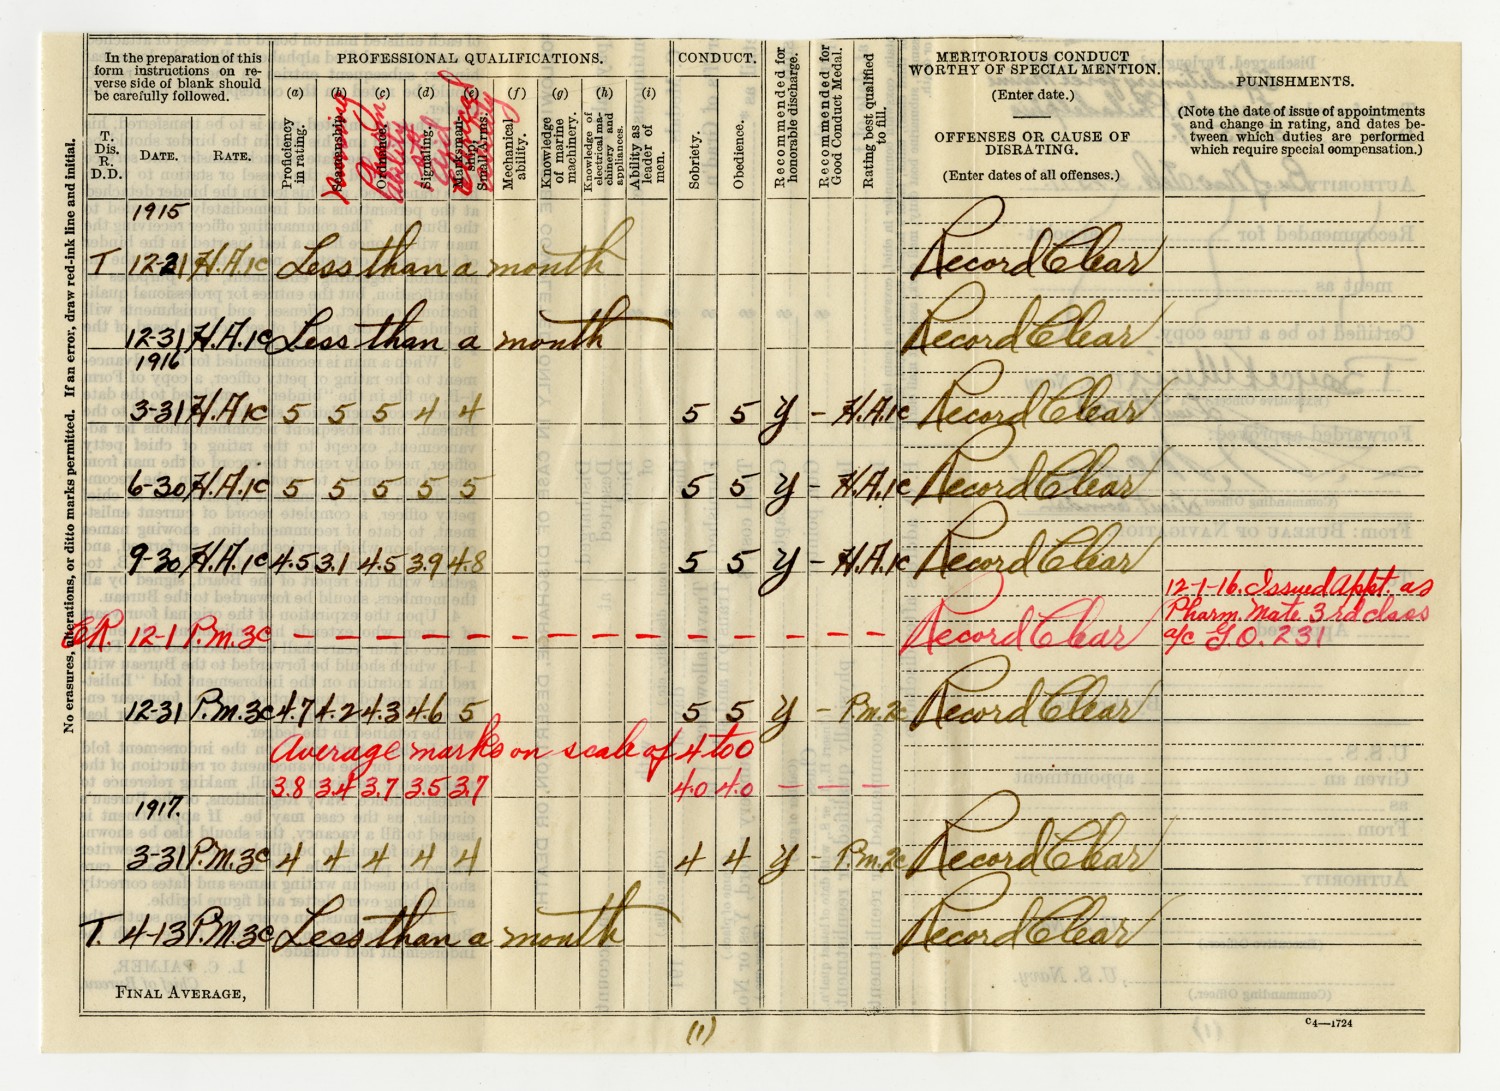 In the preparation of this
form instructions on re-
verse side of blank should
be carefully followed.
T.
Dis.
R.
D.D.
DATE.
RATE.
PROFESSIONAL QUALIFICATIONS.
(a)
(b)
(c)
(d)
(e)
(f)
(g)
(h)
(i)
Proficiency
in rating.
Seamanship.
Nursing
Ordnance.
Signaling.
Marksman-
ship,
Small Arms.
Mechanical
ability.
Knowledge
of marine
machinery.
Knowledge of
electrical ma-
chinery and
appliances.
Ability as
leader of
men.
CONDUCT.
Sobriety.
Obedience.
Recommended for
honorable discharge.
Recommended for
Good Conduct Medal.
Rating best qualified
to fill.
MERITORIOUS CONDUCT
WORTHY OF SPECIAL MENTION.
(Enter date.)
OFFENSES OR CAUSE OF
DISRATING.
(Enter dates of all offenses.)
PUNISHMENTS.
(Note the date of issue of appointments
and change in rating, and dates be-
tween which duties are performed
which require special compensation.)
No erasures, alterations, or ditto marks permitted. If an error, draw red-ink line and initial.
1915
T 12-21 H.A.1c Less than a month Record Clear
12-31 H.A.1c Less than a month Record Clear
1916
3-31 H.A.1c 5 5 5 4 4 5 5 y - H.A.1c Record Clear
6-30 H.A.1c 5 5 5 5 5 5 5 y - H.A.1c Record Clear
9-30 H.A.1c 4.5 3.1 4.5 3.9 4.8 5 5 y - H.A.1c Record Clear
12-1-16. Issued Appt. as
Pharm. Mate 3rd class
a/c G.O. 231
C.R. 12-1 P.M.3c - - - - - - - - - - - - - - Record Clear
12-31 P.M.3c 4.7 4.2 4.3 4.6 5 5 5 y - P.M.2c Record Clear
Average marks on scale of 4 to 0
3.8 3.4 3.7 3.5 3.7 4.0 4.0 - - -
1917.
3-31 P.M.3c 4 4 4 4 4 4 4 y - P.M.2c Record Clear
T. 4-13 P.M.3c Less than a month Record Clear
FINAL AVERAGE,
(1)
C4—1724